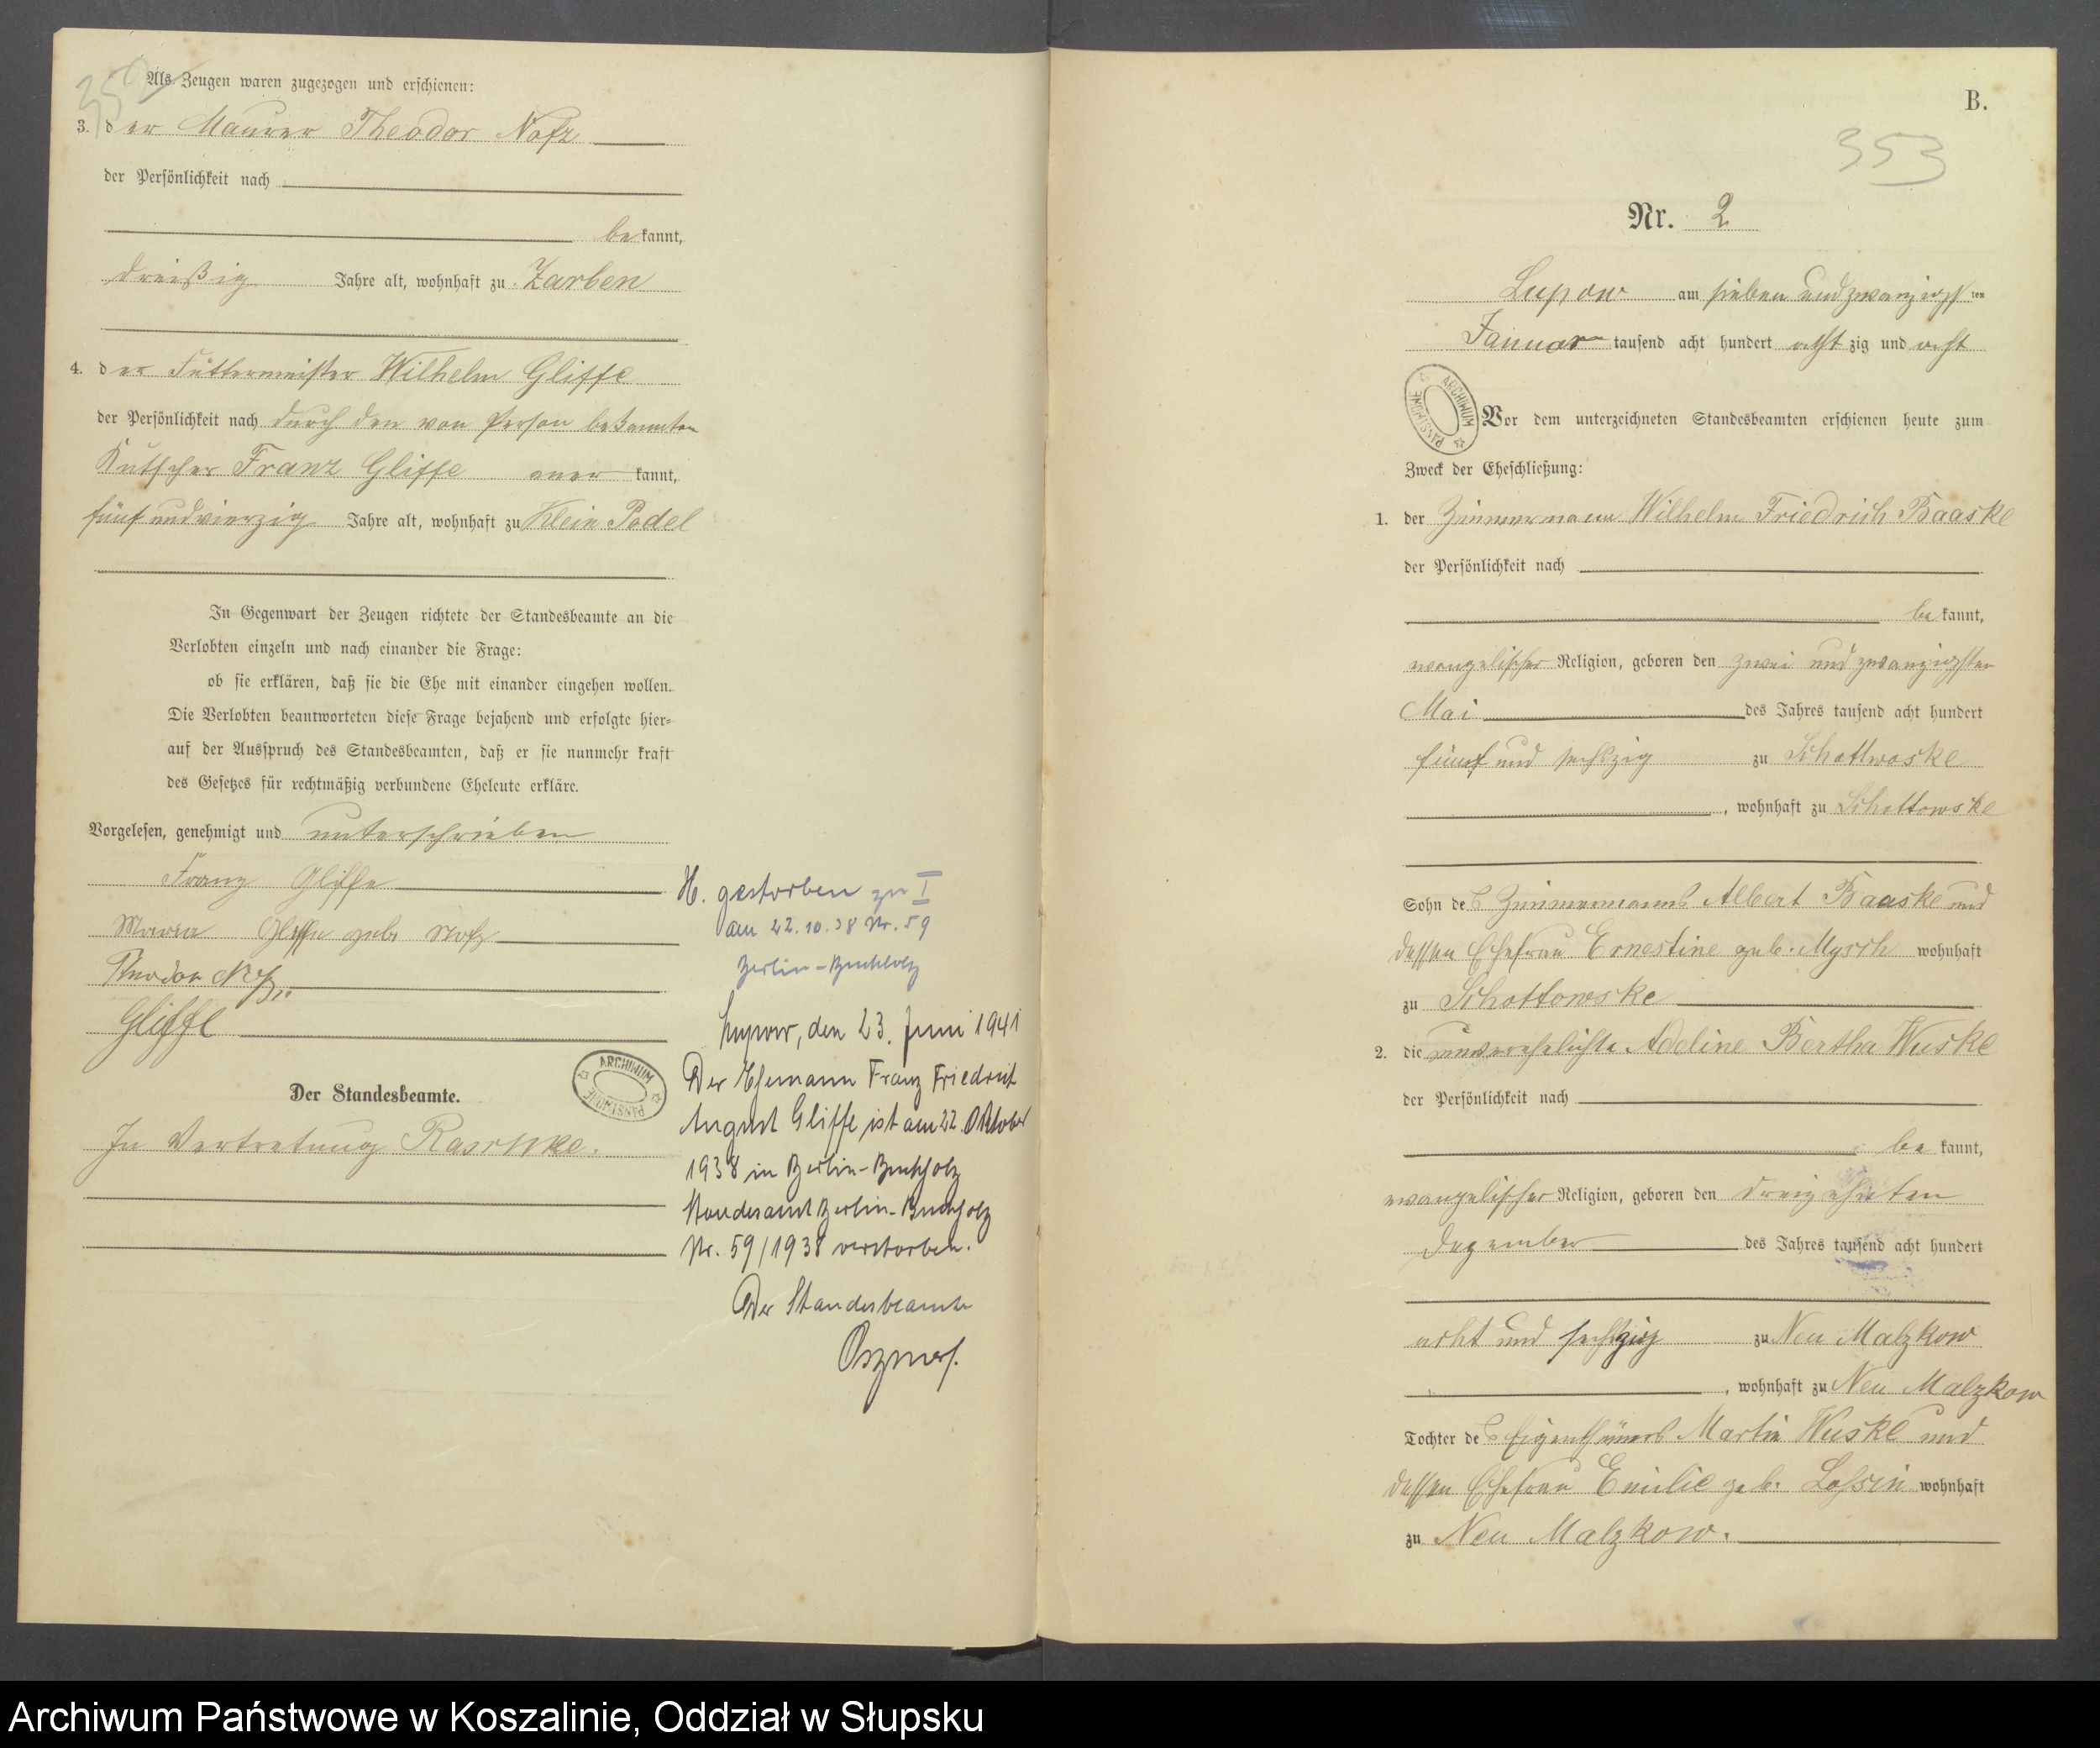 Als Zeugen waren zugezogen und erschienen:
3. der Maurer Theodor Nofz
der Persönlichkeit nach
bekannt,
dreißig Jahre alt, wohnhaft zu Zarben
4. der Futtermeister Wilhelm Gliffe
der Persönlichkeit nach durch den von Person bekannten
Kutscher Franz Gliffe anerkannt,
fünf und vierzig Jahre alt, wohnhaft zu Klein Podel
In Gegenwart der Zeugen richtete der Standesbeamte an die
Verlobten einzeln und nach einander die Frage:
ob sie erklären, daß sie die Ehe mit einander eingehen wollen.
Die Verlobten beantworteten diese Frage bejahend und erfolgte hier-
auf der Ausspruch des Standesbeamten, daß er sie nunmehr kraft
des Gesetzes für rechtmäßig verbundene Eheleute erkläre.
Vorgelesen, genehmigt und unterschrieben
Franz Gliffe
Maria Gliffe geb. Nofz
Theodor Nofz
Gliffe
Der Standesbeamte.
In Vertretung Raschke.
H. gestorben zu I
am 22.10.38 Nr. 59
Berlin-Buchholz
Lupow, den 23. Juni 1941
Der Ehemann Franz Friedrich
August Gliffe ist am 22. Oktober
1938 in Berlin-Buchholz
Standesamt Berlin-Buchholz
Nr. 59/1938 verstorben.
Der Standesbeamte
ARCHIWUM PAŃSTWOWE
B.
353
Nr. 2
Lupow am sieben und zwanzigsten
Januar tausend acht hundert achtzig und acht
ARCHIWUM PAŃSTWOWE
Vor dem unterzeichneten Standesbeamten erschienen heute zum
Zweck der Eheschließung:
1. der Zimmermann Wilhelm Friedrich Baaske
der Persönlichkeit nach
bekannt,
evangelischer Religion, geboren den zwei und zwanzigsten
Mai des Jahres tausend acht hundert
fünf und sechszig zu Schottowske
, wohnhaft zu Schottowske
Sohn des Zimmermanns Albert Baaske und
dessen Ehefrau Ernestine geb. Mysch wohnhaft
zu Schottowske
2. die unverehelichte Adeline Bertha Wuske
der Persönlichkeit nach
bekannt,
evangelischer Religion, geboren den dreizehnten
Dezember des Jahres tausend acht hundert
acht und sechszig zu Neu Malzkow
, wohnhaft zu Neu Malzkow
Tochter des Eigenthümers Martin Wuske und
dessen Ehefrau Emilie geb. Lossin wohnhaft
zu Neu Malzkow.
Archiwum Państwowe w Koszalinie, Oddział w Słupsku